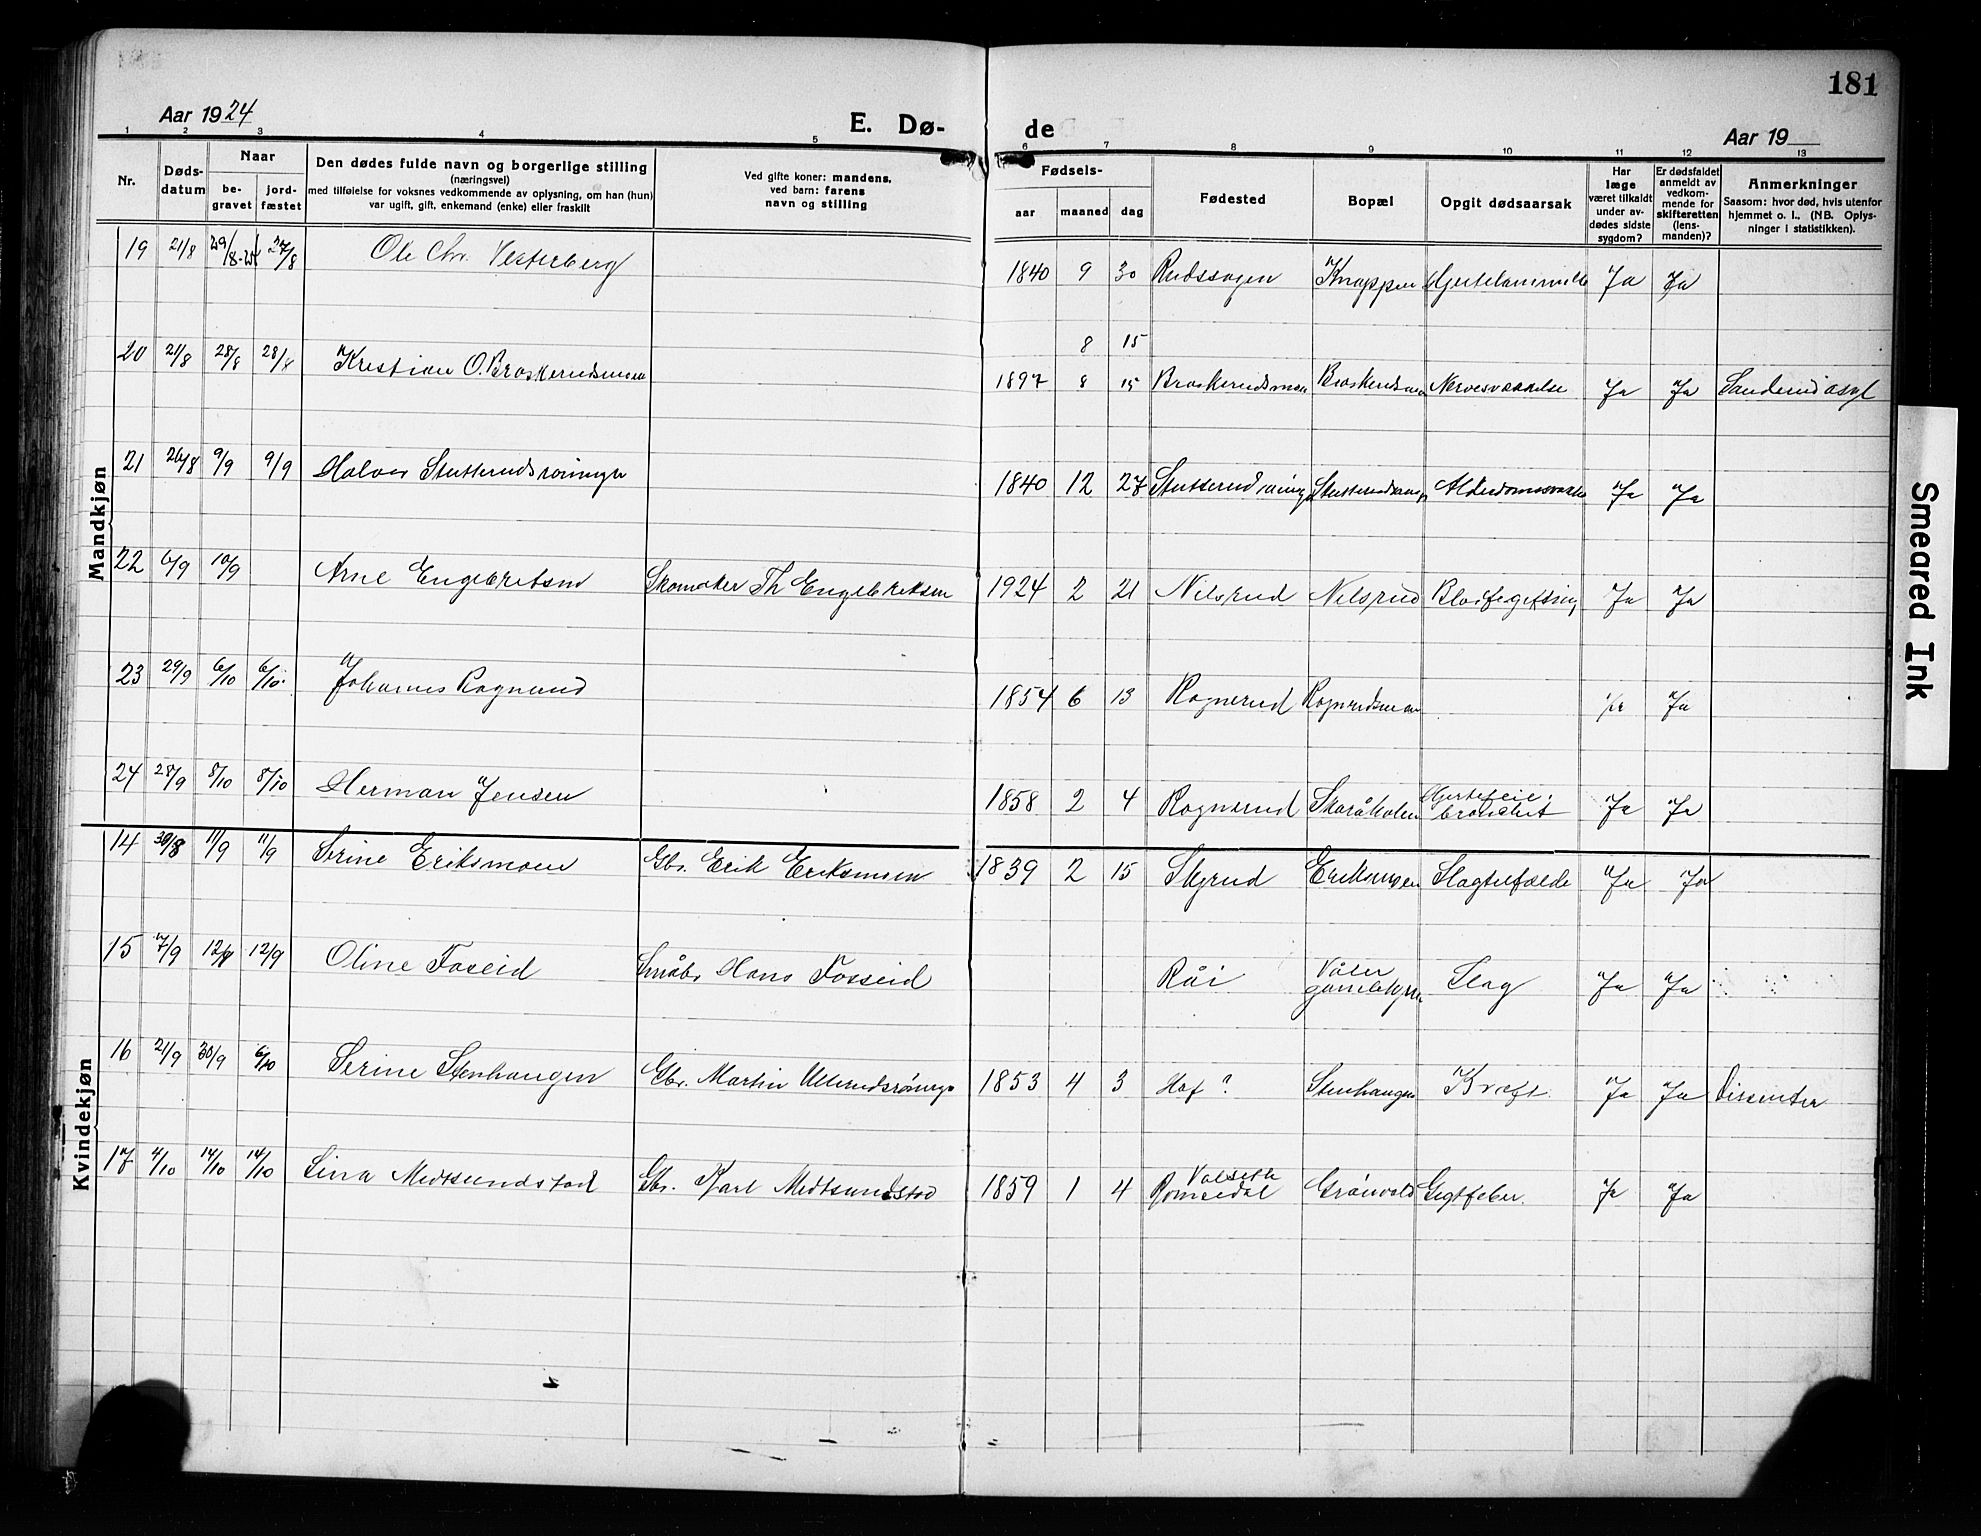 181
Aar 1924
E. Dø-
de
Aar 19
1 2 3 4 5 6 7 8 9 10 11 12 13
Nr.
Døds-
datum
Naar
be-
gravet
jord-
fæstet
Den dødes fulde navn og borgerlige stilling
(næringsvei)
med tilføielse for voksnes vedkommende av oplysning, om han (hun)
var ugift, gift, enkemand (enke) eller fraskilt
Ved gifte koner: mandens,
ved barn: farens
navn og stilling
Fødsels-
aar
maaned
dag
Fødested
Bopæl
Opgit dødsaarsak
Har
læge
været tilkaldt
under av-
dødes sidste
sygdom?
Er dødsfaldet
anmeldt av
vedkom-
mende for
skifteretten
(lens-
manden)?
Anmerkninger
Saasom: hvor død, hvis utenfor
hjemmet o. l., (NB. Oplys-
ninger i statistikken).
Mandkjøn
19 21/8 27/8 Ole Chr. Vesterberg 1840 9 30 Knappen Ja Ja
8 15
20 21/8 28/8 28/8 Kristian O. Braskerudsmoen 1897 8 15 Braskerudsmoen Ja Ja Sanderud asyl
21 26/8 9/9 9/9 Halvor 1840 12 27 Ja Ja
22 6/9 10/9 Arne Engebretsen Skomaker Th Engebretsen 1924 2 21 Nilsrud Nilsrud Blodforgiftning Ja Ja
23 29/9 6/10 6/10 Johannes Rognerud 1854 6 13 Rognerud Rognerudsmoen Ja
24 28/9 8/10 8/10 Herman Jensen 1858 2 4 Rognerud Skaråholen Hjertefeil. Ja Ja
Kvindekjøn
14 30/8 11/9 11/9 Serine Eriksmoen Gbr. Erik Eriksmoen 1839 2 15 Skjrud Eriksmoen Slagtilfælde Ja Ja
15 7/9 12/9 12/9 Oline Foseid Småbr Hans Fosseid Råi Våler Slag Ja Ja
16 21/9 30/9 6/10 Serine Stenhaugen Gbr. Martin Ullerudsrønnngen 1853 4 3 Hof? Stenhaugen Kræft. Ja Ja Dissenter
17 4/10 14/10 14/10 Lina Midtsundstad Gbr. Karl Midtsundstad 1859 1 4 Romsdal Grønvold Gigtfeber. Ja Ja
Smeared Ink